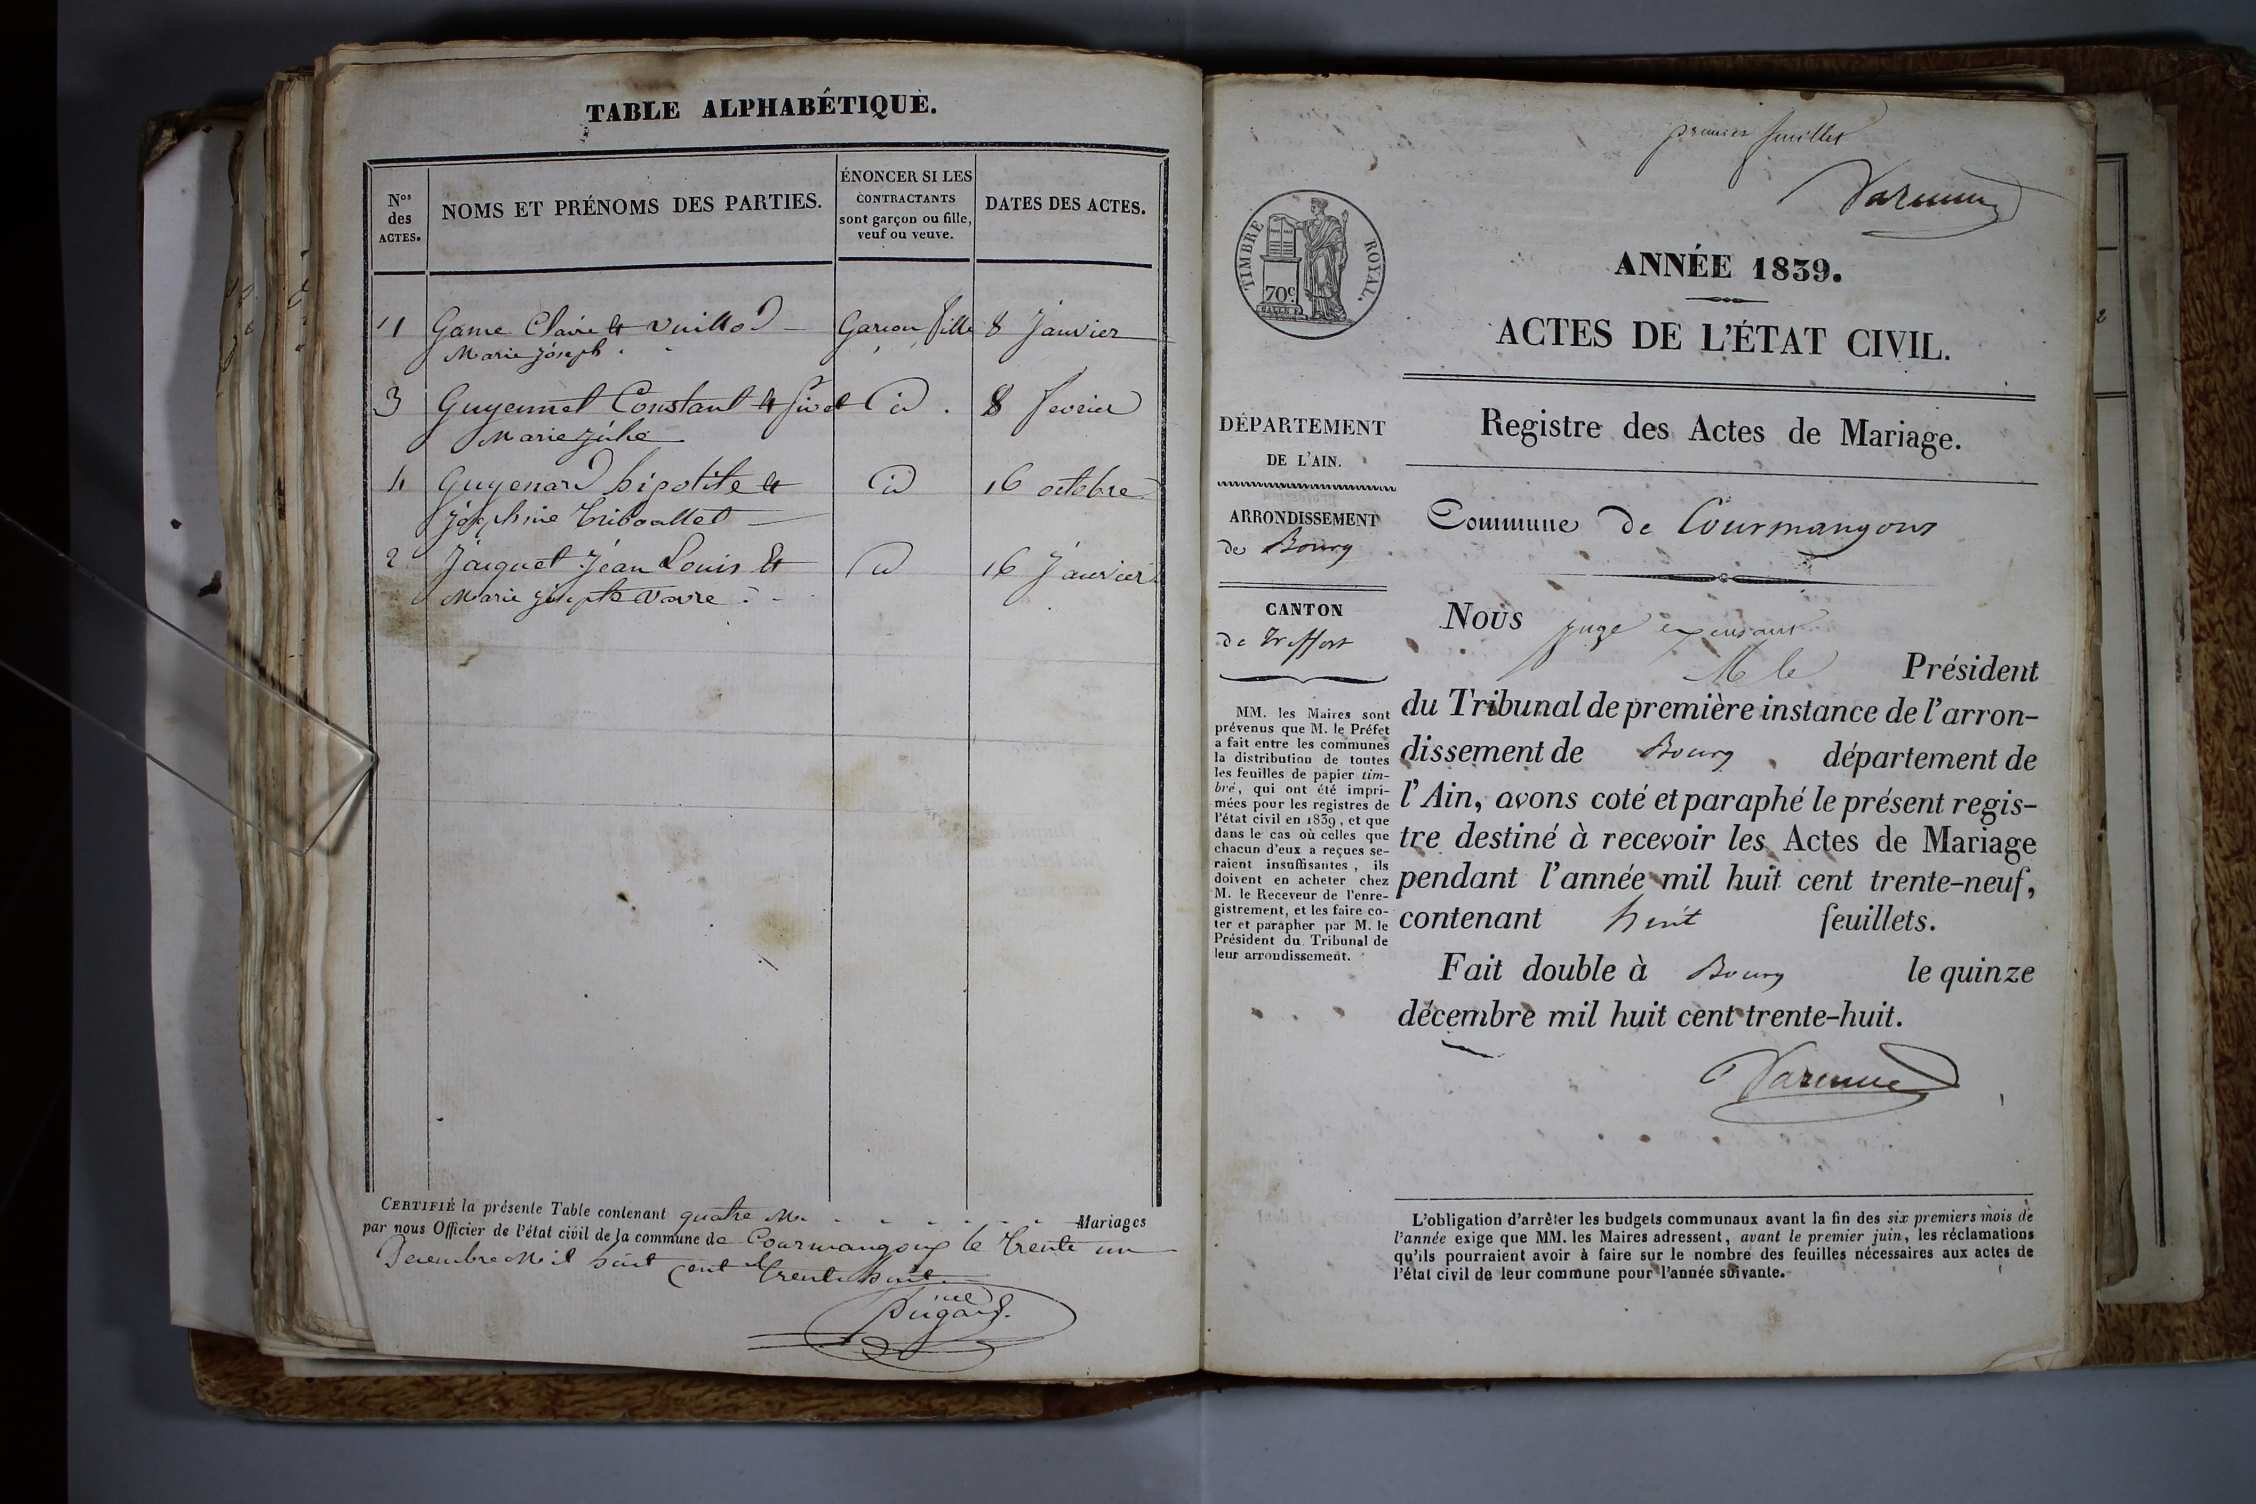 TABLE ALPHABÉTIQUE.
Nos des ACTES.
NOMS ET PRÉNOMS DES PARTIES.
ÉNONCER SI LES
CONTRACTANTS
sont garçon ou fille,
veuf ou veuve.
DATES DES ACTES.
1 Game Claire et Vuillod Garcon fille 8 Janvier
Marie Joseph
3 Guyennet Constant et id. 8 fevrier
Marie Julie
4 Guyenard hipolite et id 16 octobre
Josephine Triboullet
2 Jacquet Jean Louis et id 16 Janvier
Marie Josephte
CERTIFIÉ la présente Table contenant quatre Mariages
par nous Officier de l'état civil de la commune de Courmangoux le Trente un
Decembre Mil huit cent Trente huit
premier feuillet
Varenne
TIMBRE ROYAL.
70c
ANNÉE 1839.
ACTES DE L'ÉTAT CIVIL.
DÉPARTEMENT
DE L'AIN.
ARRONDISSEMENT
de Bourg
CANTON
de Treffort
MM. les Maires sont
prévenus que M. le Préfet
a fait entre les communes
la distribution de toutes
les feuilles de papier tim-
bré, qui ont été impri-
mées pour les registres de
l'état civil en 1839, et que
dans le cas où celles que
chacun d'eux a reçues se-
raient insuffisantes, ils
doivent en acheter chez
M. le Receveur de l'enre-
gistrement, et les faire co-
ter et parapher par M. le
Président du Tribunal de
leur arrondissement.
Registre des Actes de Mariage.
Commune de Courmangoux
Nous juge
M le Président
du Tribunal de première instance de l'arron-
dissement de Bourg département de
l'Ain, avons coté et paraphé le présent regis-
tre destiné à recevoir les Actes de Mariage
pendant l'année mil huit cent trente-neuf,
contenant huit feuillets.
Fait double à Bourg le quinze
décembre mil huit cent trente-huit.
Varenne
L'obligation d'arrêter les budgets communaux avant la fin des six premiers mois de
l'année exige que MM. les Maires adressent, avant le premier juin, les réclamations
qu'ils pourraient avoir à faire sur le nombre des feuilles nécessaires aux actes de
l'état civil de leur commune pour l'année suivante.